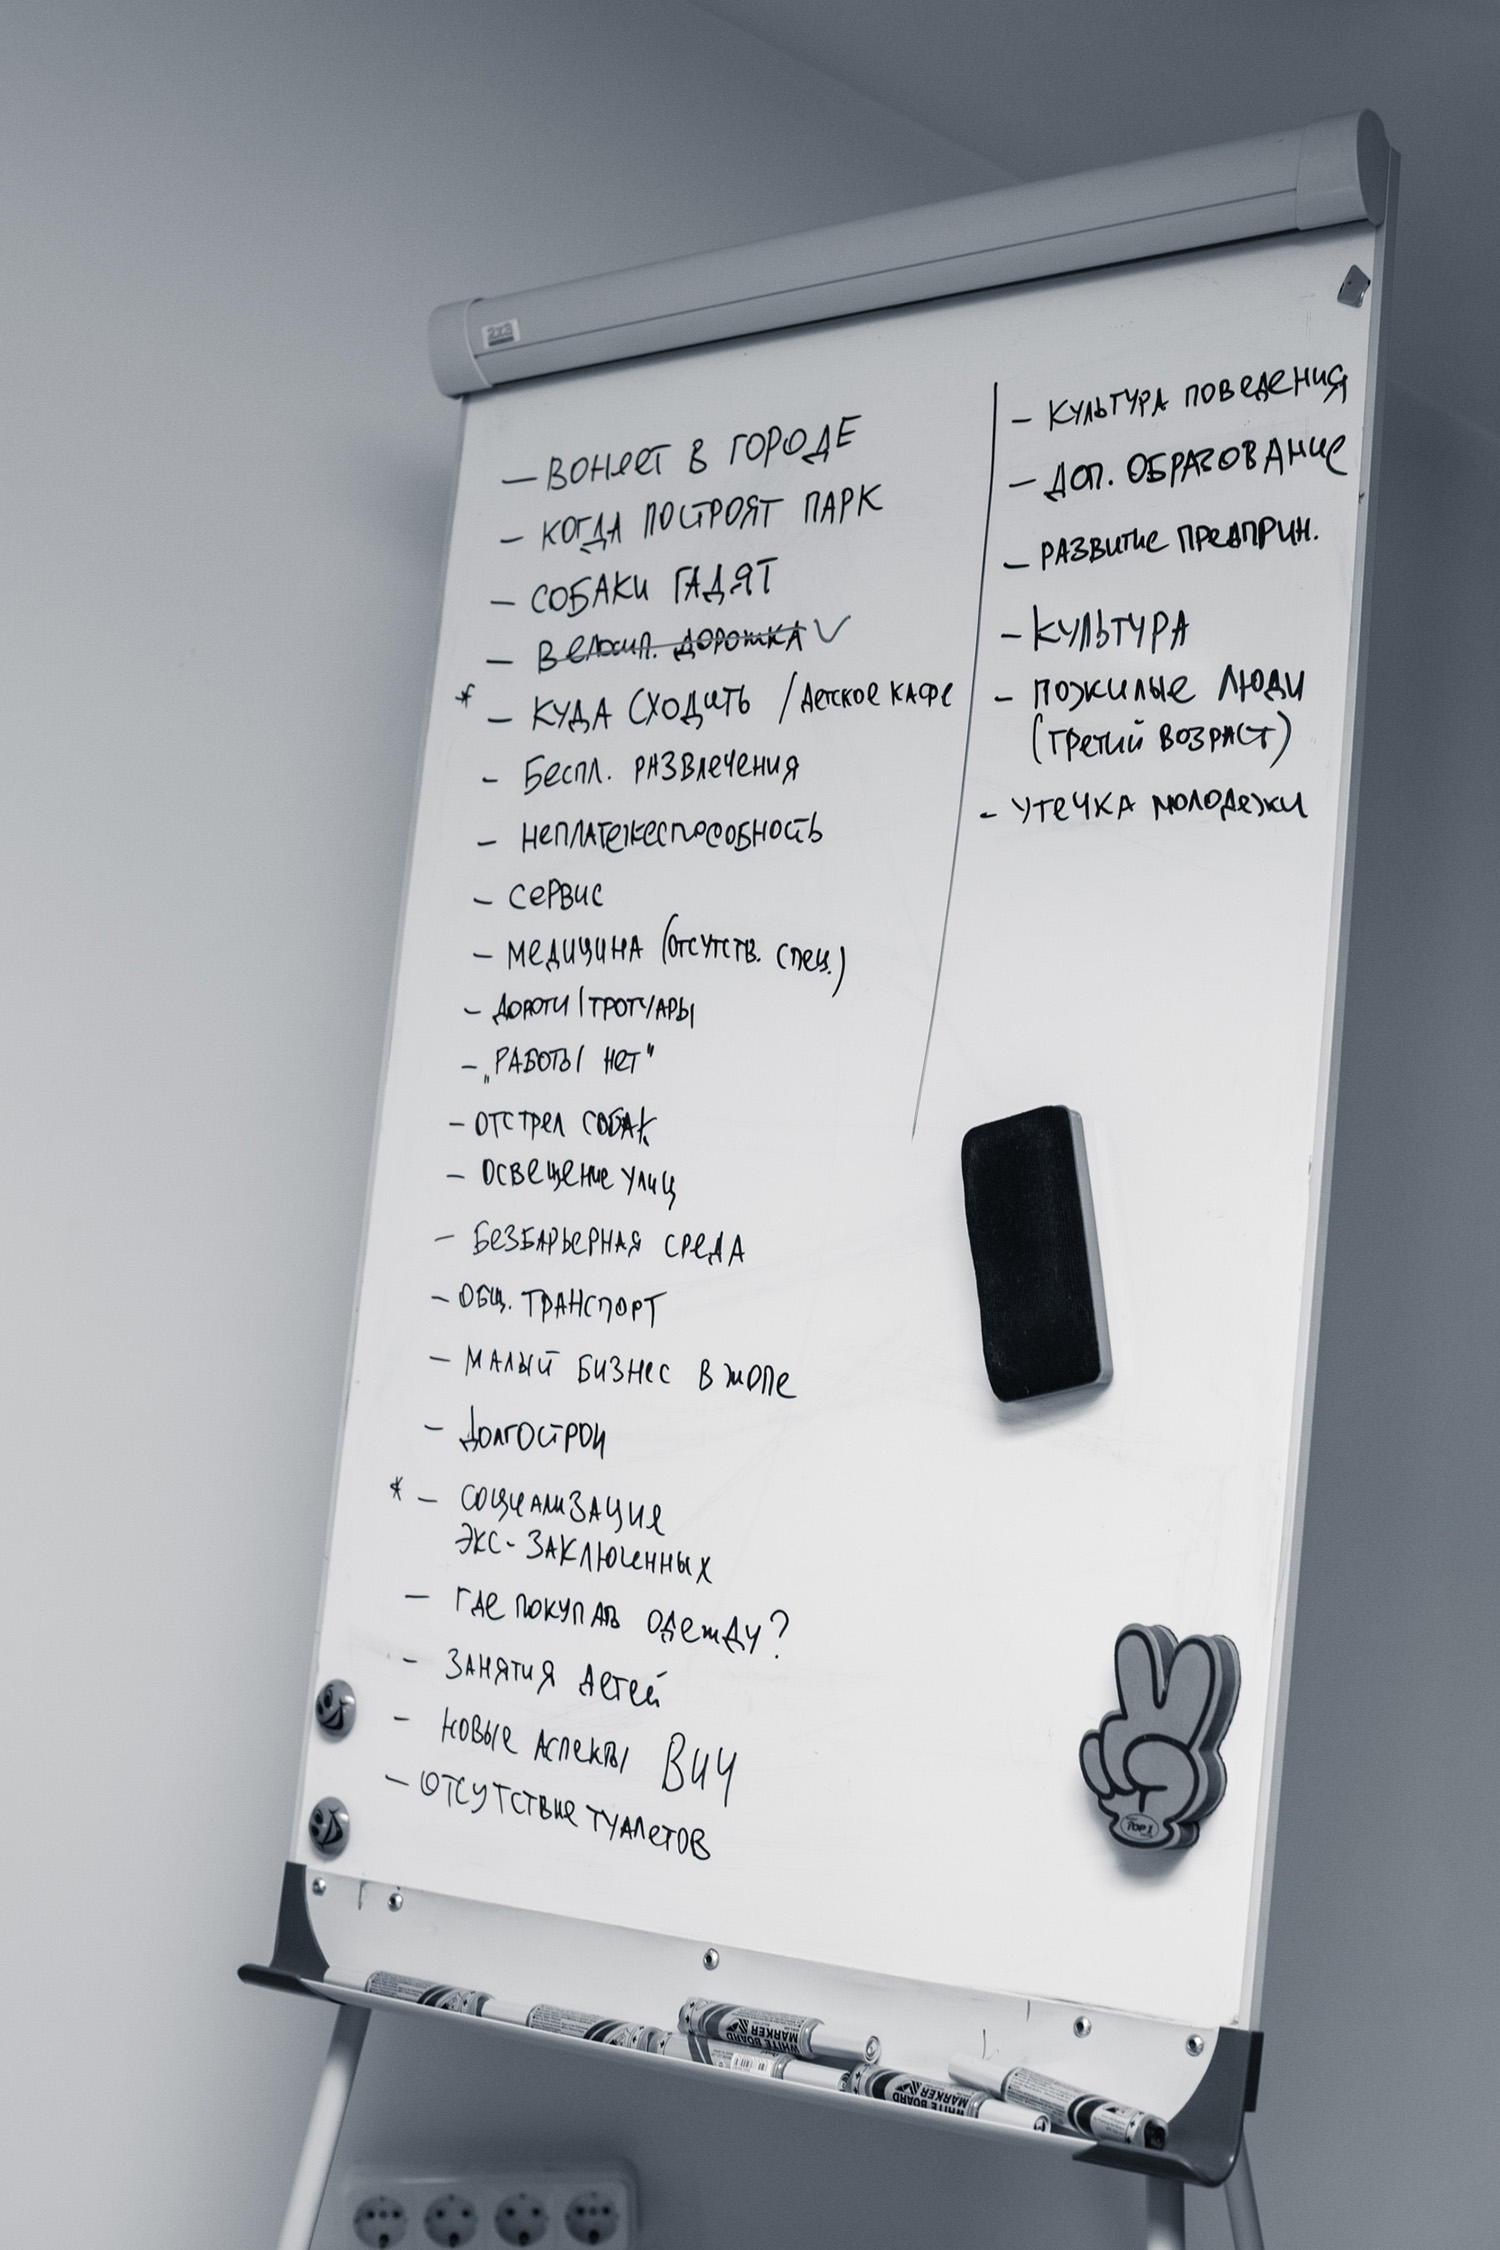 2x3
— ВОНЯЕТ В ГОРОДЕ
— КОГДА ПОСТРОЯТ ПАРК
— СОБАКИ ГАДЯТ
— Велосип. ДОРОЖКА ✓
* — КУДА СХОДИТЬ / ДЕТСКОЕ КАФЕ
— Беспл. РАЗВЛЕЧЕНИЯ
— НЕПЛАТЕЖЕСПОСОБНОСТЬ
— СЕРВИС
— МЕДИЦИНА (ОТСУТСТВ. СПЕЦ.)
— ДОРОГИ / ТРОТУАРЫ
— „РАБОТЫ НЕТ"
— ОТСТРЕЛ СОБАК
— ОСВЕЩЕНИЕ УЛИЦ
— БЕЗБАРЬЕРНАЯ СРЕДА
— ОБЩ. ТРАНСПОРТ
— МАЛЫЙ БИЗНЕС В ЖОПЕ
— ДОЛГОСТРОИ
* — СОЦИАЛИЗАЦИЯ
ЭКС-ЗАКЛЮЧЕННЫХ
— ГДЕ ПОКУПАТЬ ОДЕЖДУ?
— ЗАНЯТИЯ ДЕТЕЙ
— НОВЫЕ АСПЕКТЫ ВИЧ
— ОТСУТСТВИЕ ТУАЛЕТОВ
— КУЛЬТУРА ПОВЕДЕНИЯ
— ДОП. ОБРАЗОВАНИЕ
— РАЗВИТИЕ ПРЕДПРИН.
— КУЛЬТУРА
— ПОЖИЛЫЕ ЛЮДИ
(ТРЕТИЙ ВОЗРАСТ)
— УТЕЧКА МОЛОДЕЖИ
TOP 1
WHITE BOARD
MARKER
WHITE BOARD
MARKER